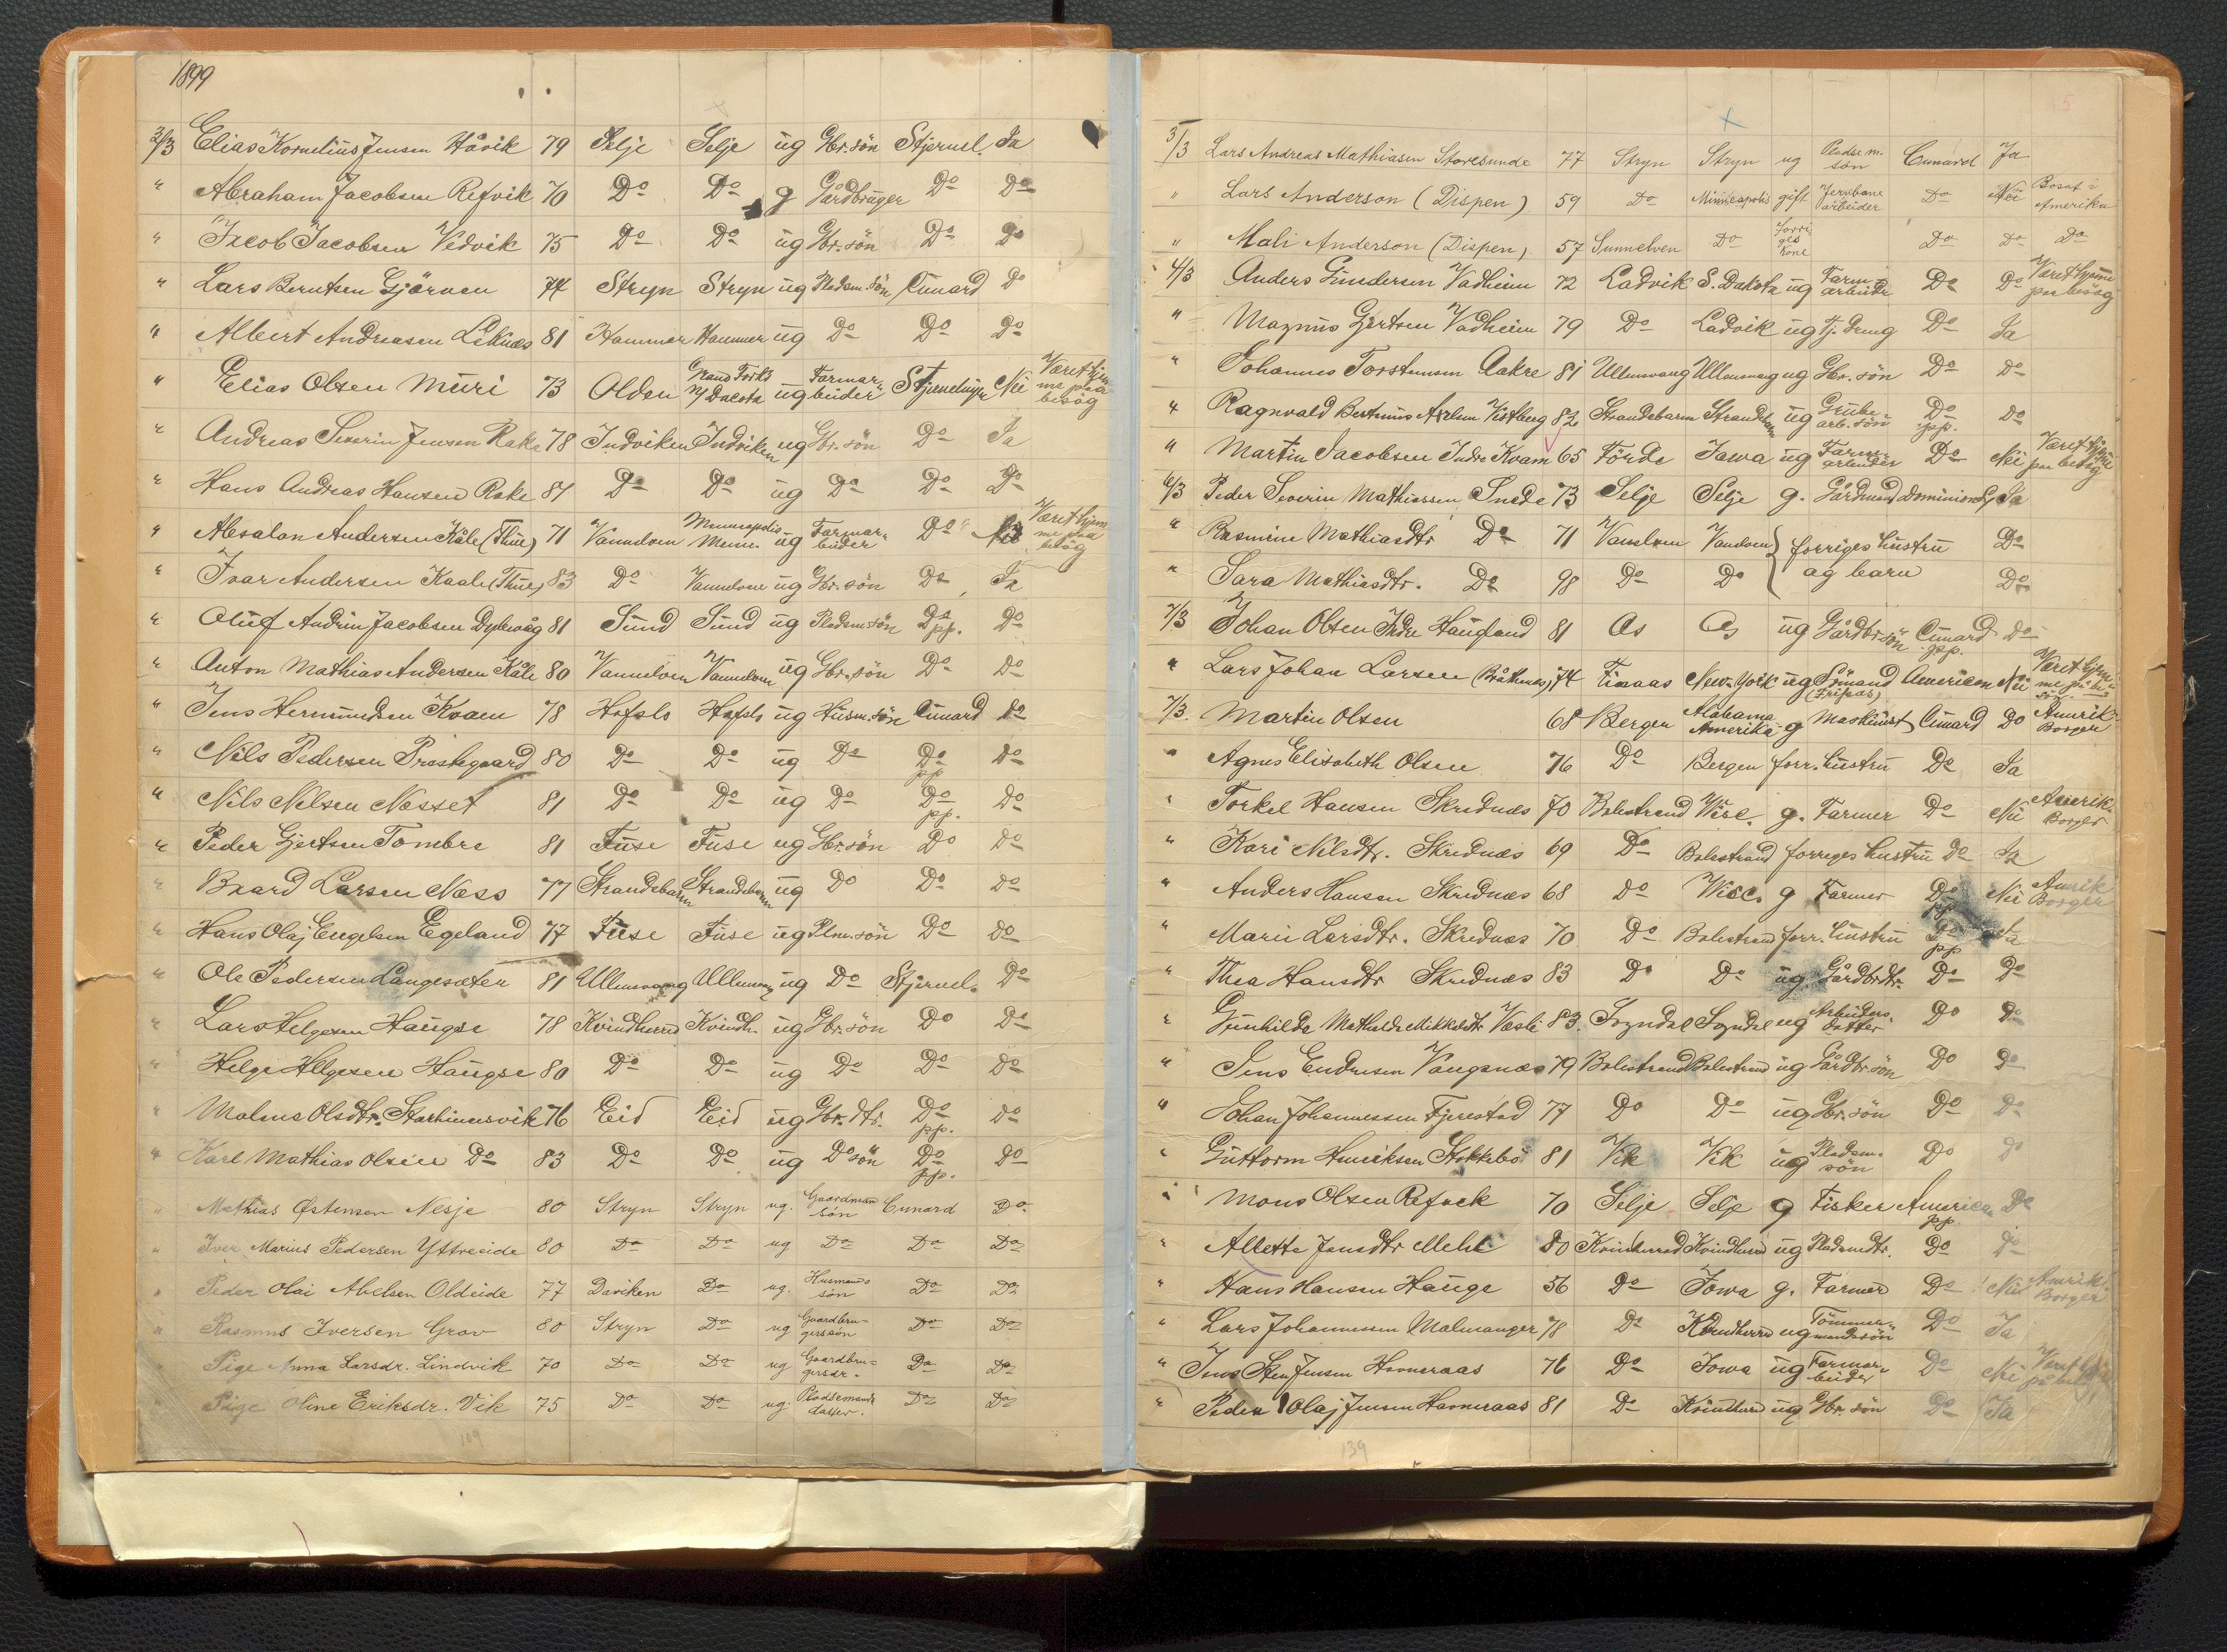 1899
2/3 Elias Kornelius Jensen Håvik 79 Selje Selje ug Gbr.sön Stjernel. Ja
" Abraham Jacobsen Refvik 70 Do Do g Gårdbruger Do Do
" Jacob Jacobsen Vedvik 75 Do Do ug Gbr.sön Do Do
" Lars Berntsen Gjörven 74 Stryn Stryn ug Pladsm.sön Cunard Do
" Albert Andreasen Leknes 81 Hammer Hammer ug Do Do Do
" Elias Olsen Muri 73 Olden Grand Forks N/Dacota ug Farmarbeider Stjernelinjen Nei Været hjemme paa besøg
" Andreas Severin Jensen Rake 78 Indviken Indviken ug Gbr.sön Do Ja
" Hans Andreas Hansen Rake 81 Do Do ug Do Do Do
" Absalon Andersen Kåle (Thue) 71 Vannelven Minneapolis Menn. ug Farmarbeider Do Nei Været hjemme paa besøg
" Ivar Andersen Kaale (Thue) 83 Do Vannelven ug Gbr.sön Do Ja
" Oluf Andrin Jacobsen Dybevåg 81 Sund Sund ug Pladsm.sön Do pp. Do
" Anton Mathias Andersen Kåle 80 Vannelven Vannelven ug Gbr.sön Do Do
" Jens Hermundsen Kvam 78 Hafslo Hafslo ug Husm.sön Cunard Do
" Nils Pedersen Prestegaard 80 Do Do ug Do Do pp Do
" Nils Nilsen Nesset 81 Do Do ug Do Do pp. Do
" Peder Gjertsen Tombre 81 Fuse Fuse ug Gbr.sön Do Do
" Baard Larsen Næss 77 Strandebarm Strandebarm ug Do Do Do
" Hans Olaj Engelsen Egeland 77 Fuse Fuse ug Plm.sön Do Do
" Ole Pedersen Langesæter 81 Ullensvang Ullensvang ug Do Stjernel. Do
" Lars Helgesen Haugse 78 Kvindherred Kvindh. ug Gbr.sön Do Do
" Helge Helgesen Haugse 80 Do Do ug Do Do Do
" Malene Olsdtr. Starheimsvik 76 Eid Eid ug Gbr.dtr. Do pp. Do
" Karl Mathias Olsen Do 83 Do Do ug Do sön Do pp. Do
" Mathias Østensen Nesje 80 Stryn Stryn ug. Gaardman sön Cunard Do
" Iver Marius Pedersen Yttreeide 80 Do Do ug Do Do Do
" Peder Olai Abelsen Oldeide 77 Daviken Do ug. Husmands sön Do Do
" Rasmus Iversen Grov 80 Stryn Do ug Gaardbrugerssön Do Do
" Pige Anna Larsdr. Lindvik 70 Do Do ug Gaardbrugersdr. Do Do
" Pige Oline Eriksdr. Vik 75 Do Do ug. Pladsemands datter. Do Do
109
5
3/3 Lars Andreas Mathiasen Storesunde 77 Stryn Stryn ug Pladsem. sön Cunard Ja
" Lars Anderson (Dispen) 59 Do Minneapolis gift Jernbane arbeider Do Nei Bosat i Amerika
" Mali Anderson (Dispen) 57 Sunnelven Do Forriges kone Do Do Do
4/3 Anders Gundersen Vadheim 72 Ladvik S. Dakota ug Farmarbeider Do Do Været hjemme paa besøg
" Magnus Gjertsen Vadheim 79 Do Ladvik ug Tj. dreng Do Ja
" Johannes Torstensen Aakre 81 Ullensvang Ullensvang ug Gbr.sön Do Do
" Ragnvald Bertinus Axelsen Vistberg 82 Strandebarm Strandebarm ug Grube-arb.sön Do pp. Do
" Martin Jacobsen Indre Kvam 65 Förde Iowa ug Farmarbeider Do Nei Været hjemme paa besøg
6/3 Peder Severin Mathiassen Snede 73 Selje Selje g. Gårdmand Dominion L. Ja
" Rasmine Mathiasdtr Do 71 Vanelven Vanelven } forriges hustru Do
" Sara Mathiasdtr. Do 98 Do Do og barn Do
7/3 Johan Olsen Indre Haugland 81 Os Os ug Gårdbr.sön Cunard pp. Do
" Lars Johan Larsen (Bråthnes) 74 Finaas New-York ug Sömand American Nei
7/3. Martin Olsen 68 Bergen Alabama Amerika g Maskinist Cunard Do Amerik. Borger
" Agnes Elisabeth Olsen 76 Do Bergen forr. hustru Do Ja
" Torkel Hansen Skrednæs 70 Balestrand Wisc. g. Farmer Do Nei Amerik. Borger
" Kari Nilsdtr. Skrednæs 69 Do Balestrand forriges hustru Do Ja
" Anders Hansen Skrednæs 68 Do Wisc. g Farmer Do pp Nei Amerik Borger
" Marie Larsdtr. Skrednæs 70 Do Balestrand forr. hustru Do pp Ja
" Thea Hansdtr Skrednæs 83 Do Do ug. Gårdbr.dtr. Do Do
" Gunhilde Mathilde Mikkelsdtr Væsli 83. Sogndal Sogndal ug Arbeiders datter Do Do
" Jens Endresen Vangsnæs 79 Balestrand Balestrand ug Gårdbr.sön Do Do
" Johan Johannessen Fjerestad 77 Do Do ug Gbr.sön Do Do
" Guttorm Henriksen Stokkebö 81 Vik Vik ug Pladsm. sön Do Do
" Mons Olsen Refvek 70 Selje Selje g Fisker America pp Do
" Allette Jensdtr Mehl 80 Kvindherred Kvindherred ug Pladsmdtr. Do Do
" Hans Hansen Hauge 56 Do Iowa g. Farmer Do Nei Amerik. Borger
" Lars Johannessen Malmanger 78 Do Kvindherred ug Tömmermandssön Do Ja
" Jens Sten Jensen Hovneraas 76 Do Iowa ug Farmarbeider Do Nei
" Peder Olaj Jensen Hovneraas 81 Do Kvindherred ug Gbr.sön Do Ja
139